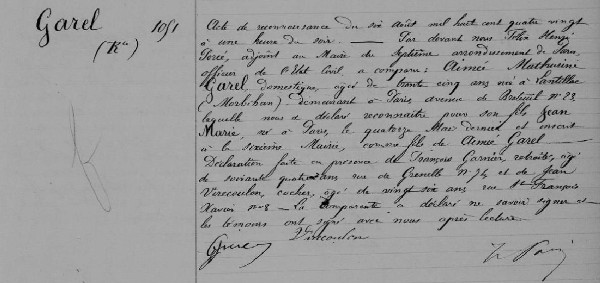 Garel 1051
(Rce)
Acte de reconnaissance du six août mil huit cent quatre vingt
à une heure du soir. — Par devant nous Félix Henri
adjoint au Maire du Septième arrondissement de Paris,
officier de l'Etat Civil, a comparu: Aimée Mathurine
Garel domestique, âgée de trente cinq ans née à
(Morbihan) demeurant à Paris, avenue de Breteuil No 23,
laquelle nous a déclaré reconnaître pour son fils Jean
Marie, né à Paris, le quatorze Mai dernier et inscrit
à la sixième Mairie, comme fils de Aimée Garel —
Déclaration faite en présence de François Garnier, retraité, âgé
de soixante quatre ans rue de Grenelle No 74 et de Jean
Virecoulon, cocher, âgé de vingt six ans rue St François
Xavier No 8 — La comparante a déclaré ne savoir signer et
les témoins ont signé avec nous après lecture.
Virecoulon